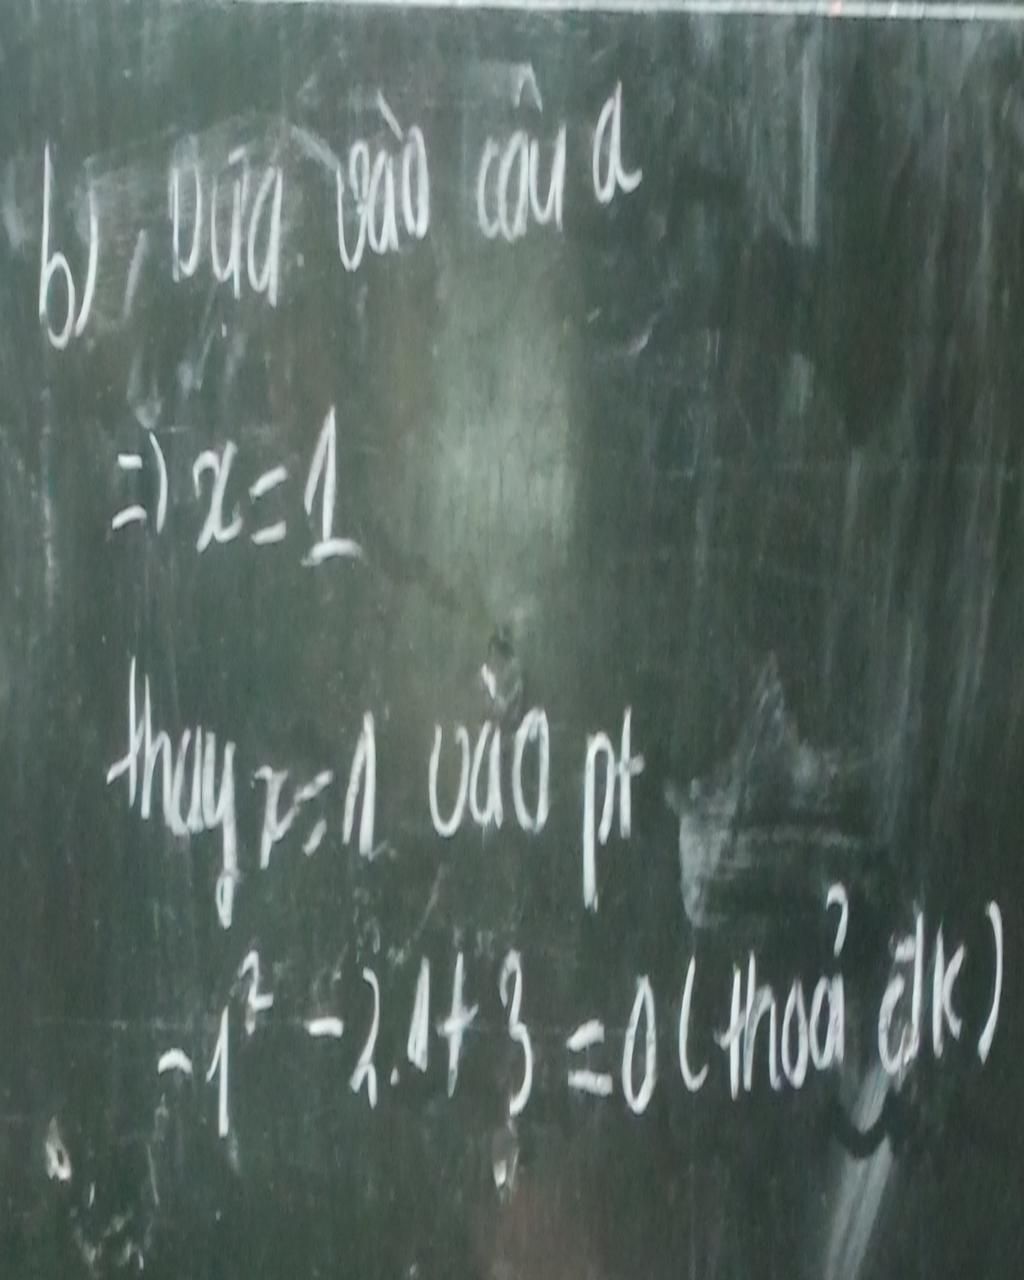 b), Dựa vào câu a
=) x = 1
thay x = 1 vào pt
-1² - 2.1 + 3 = 0 (thoả đk)